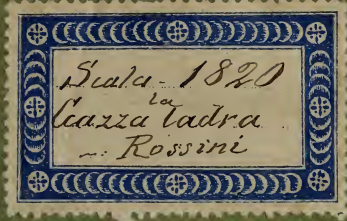 Scala - 1820
la
Gazza ladra
Rossini